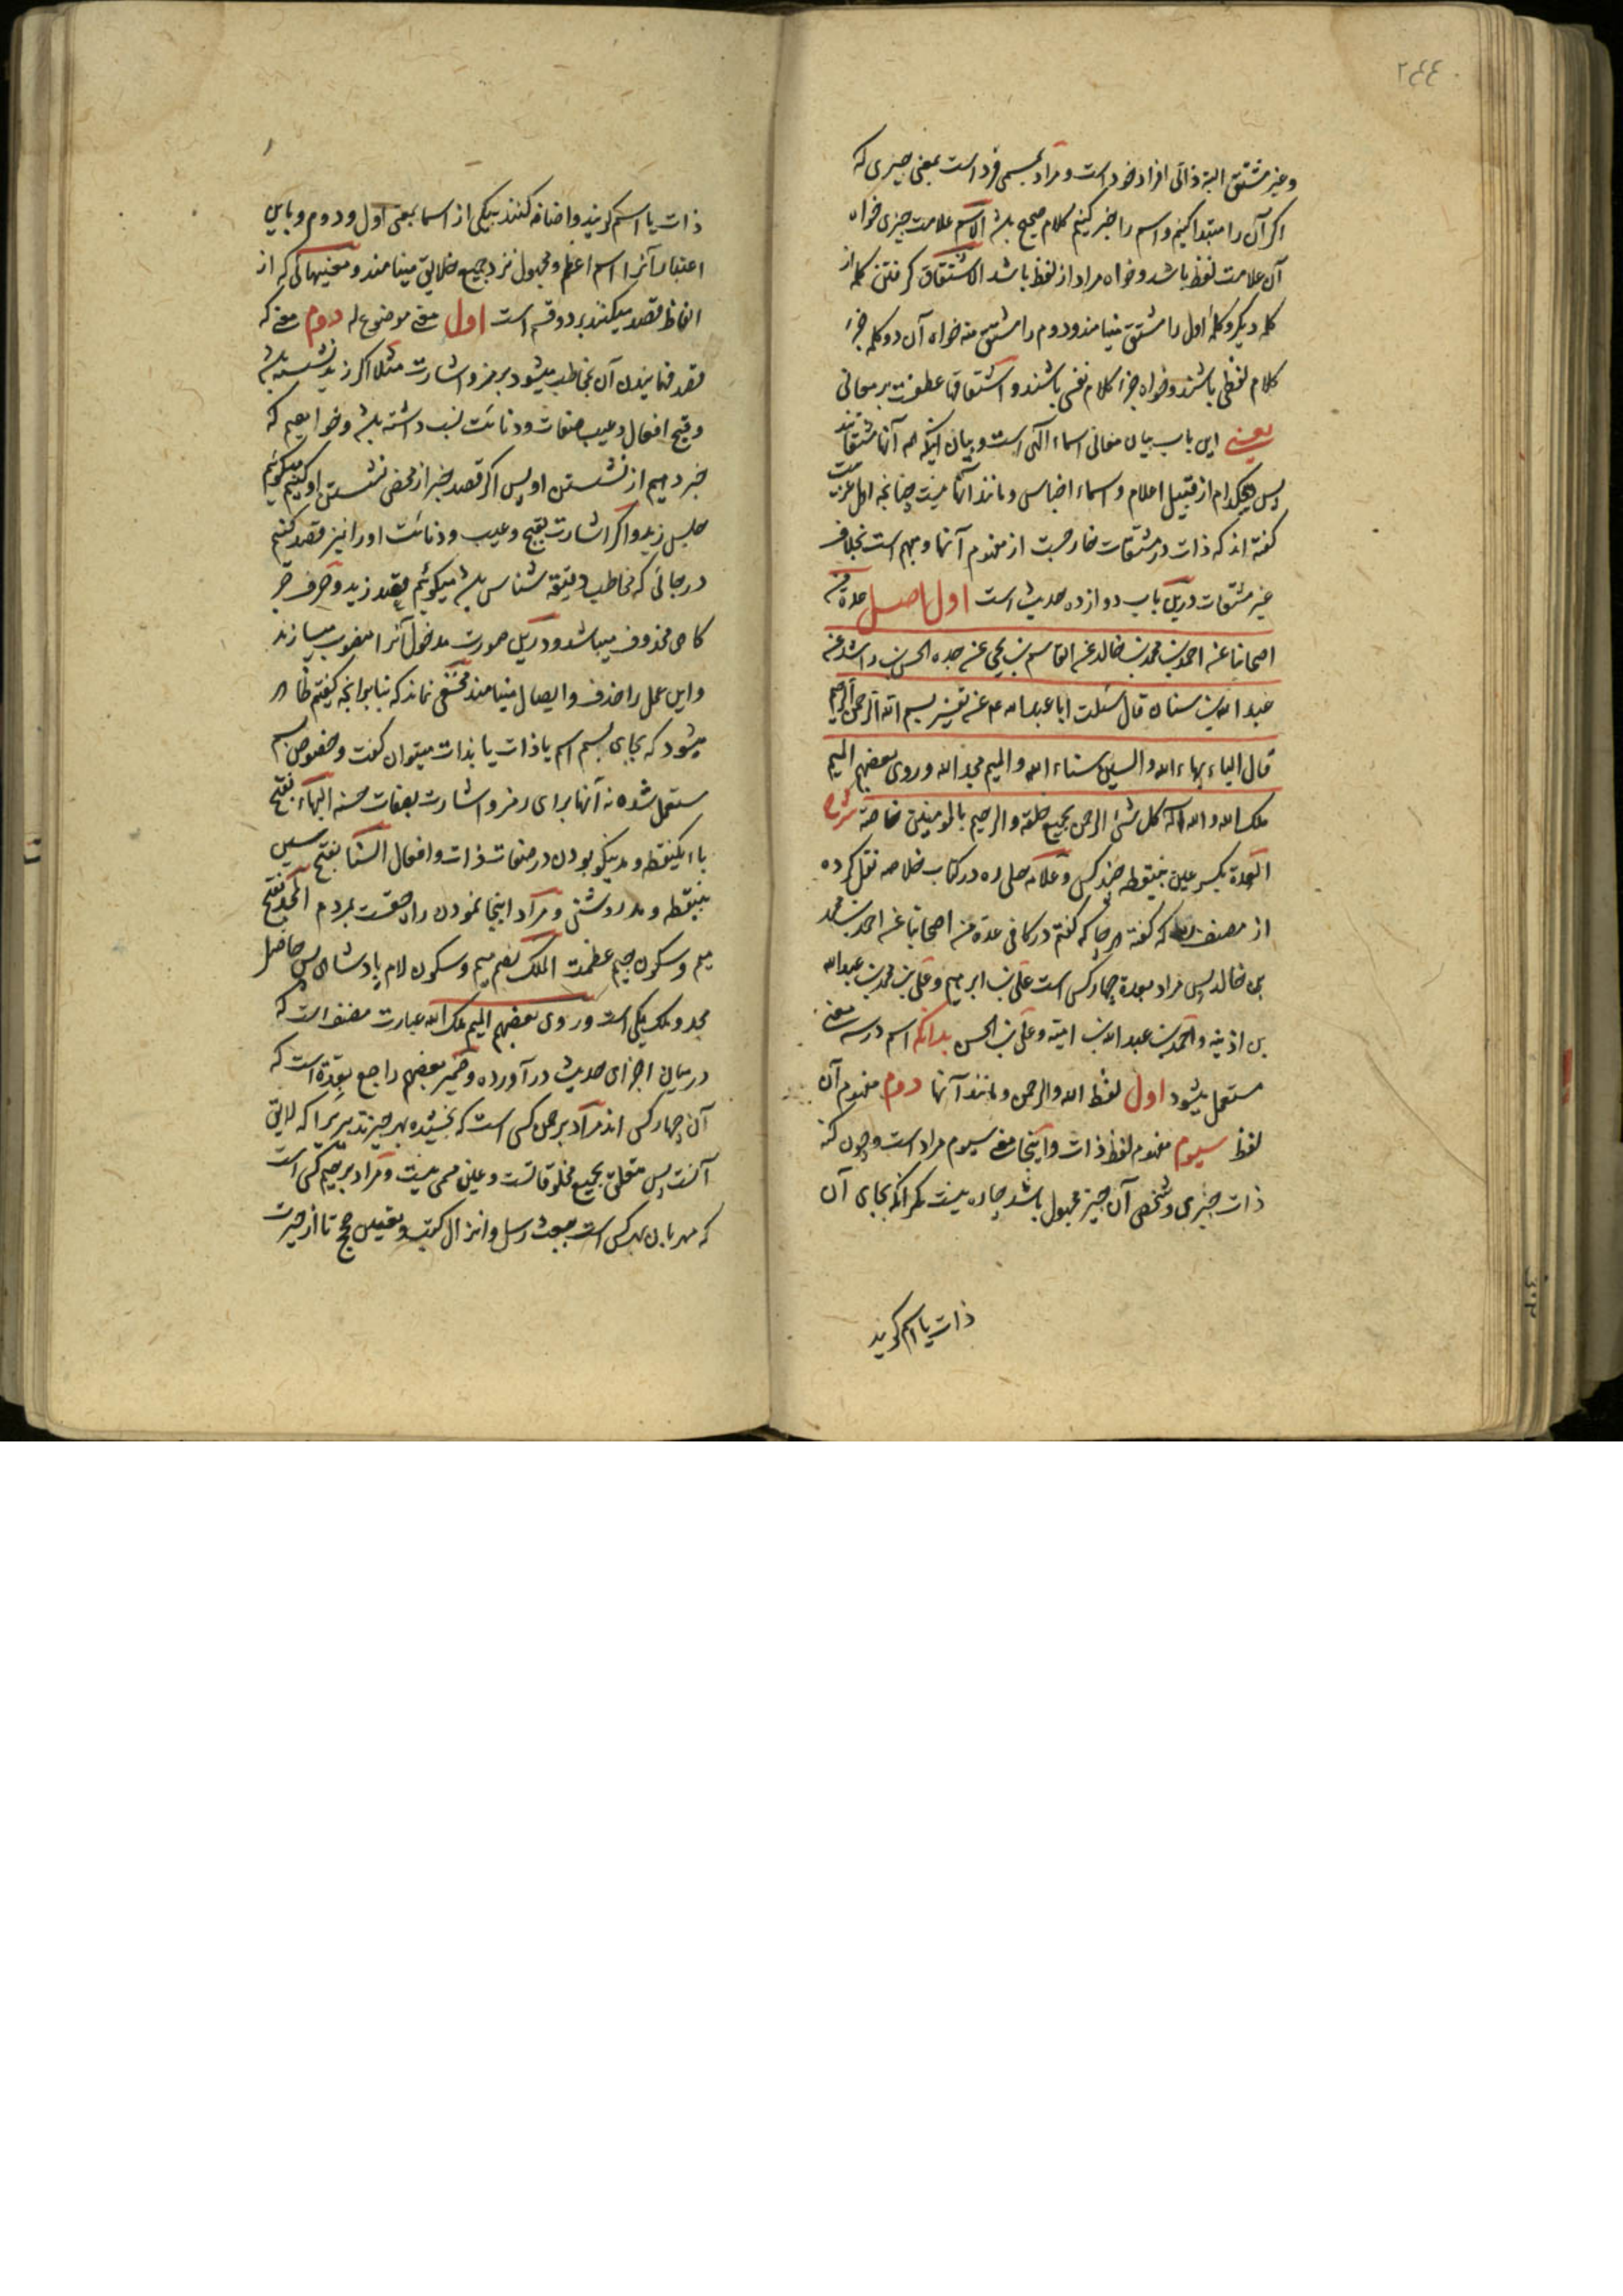 ٢٤٤
وغیر مشتق البته ذاتی افراد خود است و مراد بمسمی فرد است بمعنی چیزی که
اکر آن را مبتدا کنیم و اسم را خبر کنیم کلام صحیح باشد الاسم علامت چیزی خواه
آن علامت لفظ باشد و خواه مراد از لفظ باشد الاشتقاق کرفتن کلمه از
کلمه دیکر و کلمهٔ اول را مشتق مینامند و دوم را مشتق منه خواه آن دو کلمه جزء
کلام لفظی باشند و خواه جزء کلام نفسی باشند و اشتقاقها عطفست بر معانی
یعنی این باب بیان معانی اسماء الهی است و بیان اینکه همه آنها مشتقاتند
پس هیچکدام از قبیل اعلام و اسماء اجناس و مانند آنها نیست چنانچه اهل عربیت
کفته اند که ذات در مشتقات خارجست از مفهوم آنها و مبهم است بخلاف
غیر مشتقات درین باب دوازده حدیث است اول اصل عدة من
اصحابنا عن احمد بن محمد بن خالد عن القاسم بن یحیی عن جده الحسن بن راشد عن
عبد الله بن سنان قال سئلت ابا عبد الله ع عن تفسیر بسم الله الرحمن الرحیم
قال الباء بهاء الله والسین سناء الله والمیم مجد الله وروی بعضهم المیم
ملک الله والله اله کل شئ الرحمن بجمیع خلقه والرحیم بالمؤمنین خاصة شرح
العدة بکسر عین بینقطه چند کس و علامه حلی ره در کتاب خلاصه نقل کرده
از مصنف که کفته هر جا که کفتم در کافی عدة من اصحابنا عن احمد بن محمد
بن خالد پس مراد بعدة چهار کس است علی بن ابرهیم و علی بن محمد بن عبدالله
بن اذینه و احمد بن عبد الله بن امیه و علی بن الحسن بدانکه اسم در سه معنی
مستعمل میشود اول لفظ الله والرحمن و مانند آنها دوم مفهوم آن
لفظ سیوم مفهوم لفظ ذات و اینجا معنی سیوم مراد است و چون کنه
ذات چیزی و شخص آن چیز مجهول باشد چاره نیست مکر انکه بجای آن
ذات یا اسم کویند
ذات یا اسم کویند و اضافه کنند بیکی از اسما بمعنی اول و دوم و باین
اعتبار آنرا اسم اعظم و مجهول نزد جمیع خلایق مینامند و معنیهائی که از
الفاظ قصد میکنند بر دو قسم است اول معنی موضوع له دوم معنی که
قصد فهمانیدن آن بمخاطب میشود برمز و اشارت مثلا اکر زید نشسته باشد
و قبح افعال و عیب صفات و دنائت نسب داشته باشد و خواهیم که
خبر دهیم از نشستن او پس اکر قصد خبر از محض نشستن او کنیم میکوئیم
جلس زید و اکر اشارت بقبح و عیب و دنائت اورا نیز قصد کنیم
در جائی که مخاطب دقیقه شناس باشد میکوئیم قعد زید و حرف جر
کاهی محذوف میباشد و درین صورت مدخول آنرا منصوب میسازند
و این عمل را حذف و ایصال مینامند مخفی نماند که بنابر انچه کفتیم ظاهر
میشود که بجای بسم اسم یا ذات یا بذات میتوان کفت و خصوص بسم
مستعمل شده نه آنها برای رمز و اشارت بصفات حسنه البهاء بفتح
باء یکنقطه و مد نیکو بودن در صفات ذات و افعال السنا بفتح سین
بینقطه و مد روشنی و مراد اینجا نمودن راه حقست بمردم المجد بفتح
میم و سکون جیم عظمت الملک بضم میم و سکون لام پادشاهی پس حاصل
مجد و ملک یکی است و روی بعضهم المیم ملک الله عبارت مصنف است که
درمیان اجزای حدیث در آورده و ضمیر بعضهم راجع بعدة است که
آن چهار کس اند مراد برحمن کسی است که بخشیده بهر چیز تدبیریرا که لایق
آنست پس متعلق بجمیع مخلوقاتست و عین مسمی نیست و مراد برحیم کسی است
که مهربان بهر کس است ببعث رسل و انزال کتب و تعیین حجج تا از حیرت